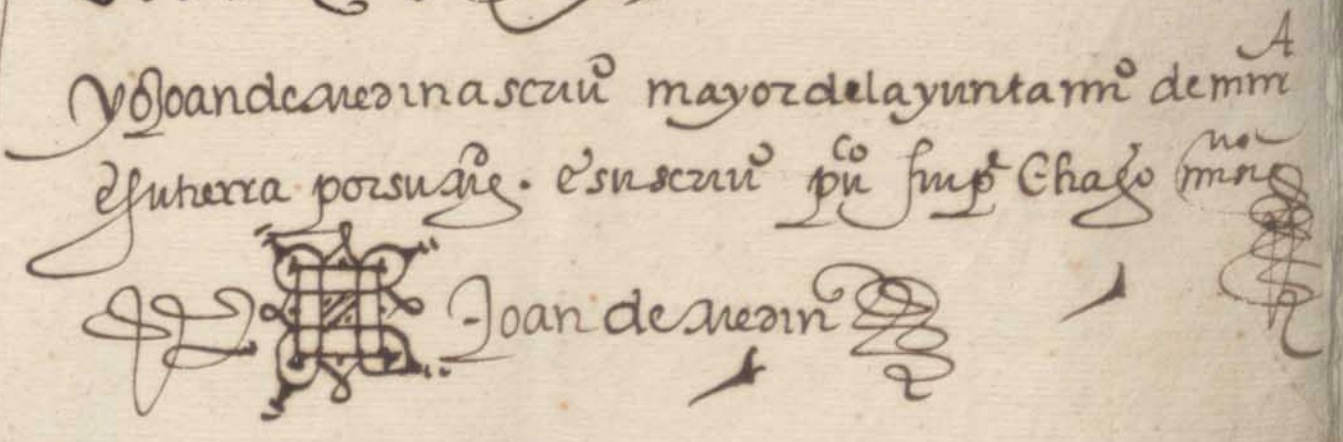 yo Joan de medina scriuº mayor del ayuntamiº de mm A
e su tierra por su mg. e su scriuº puco fui pte E hago mi sigº
Joan de medin